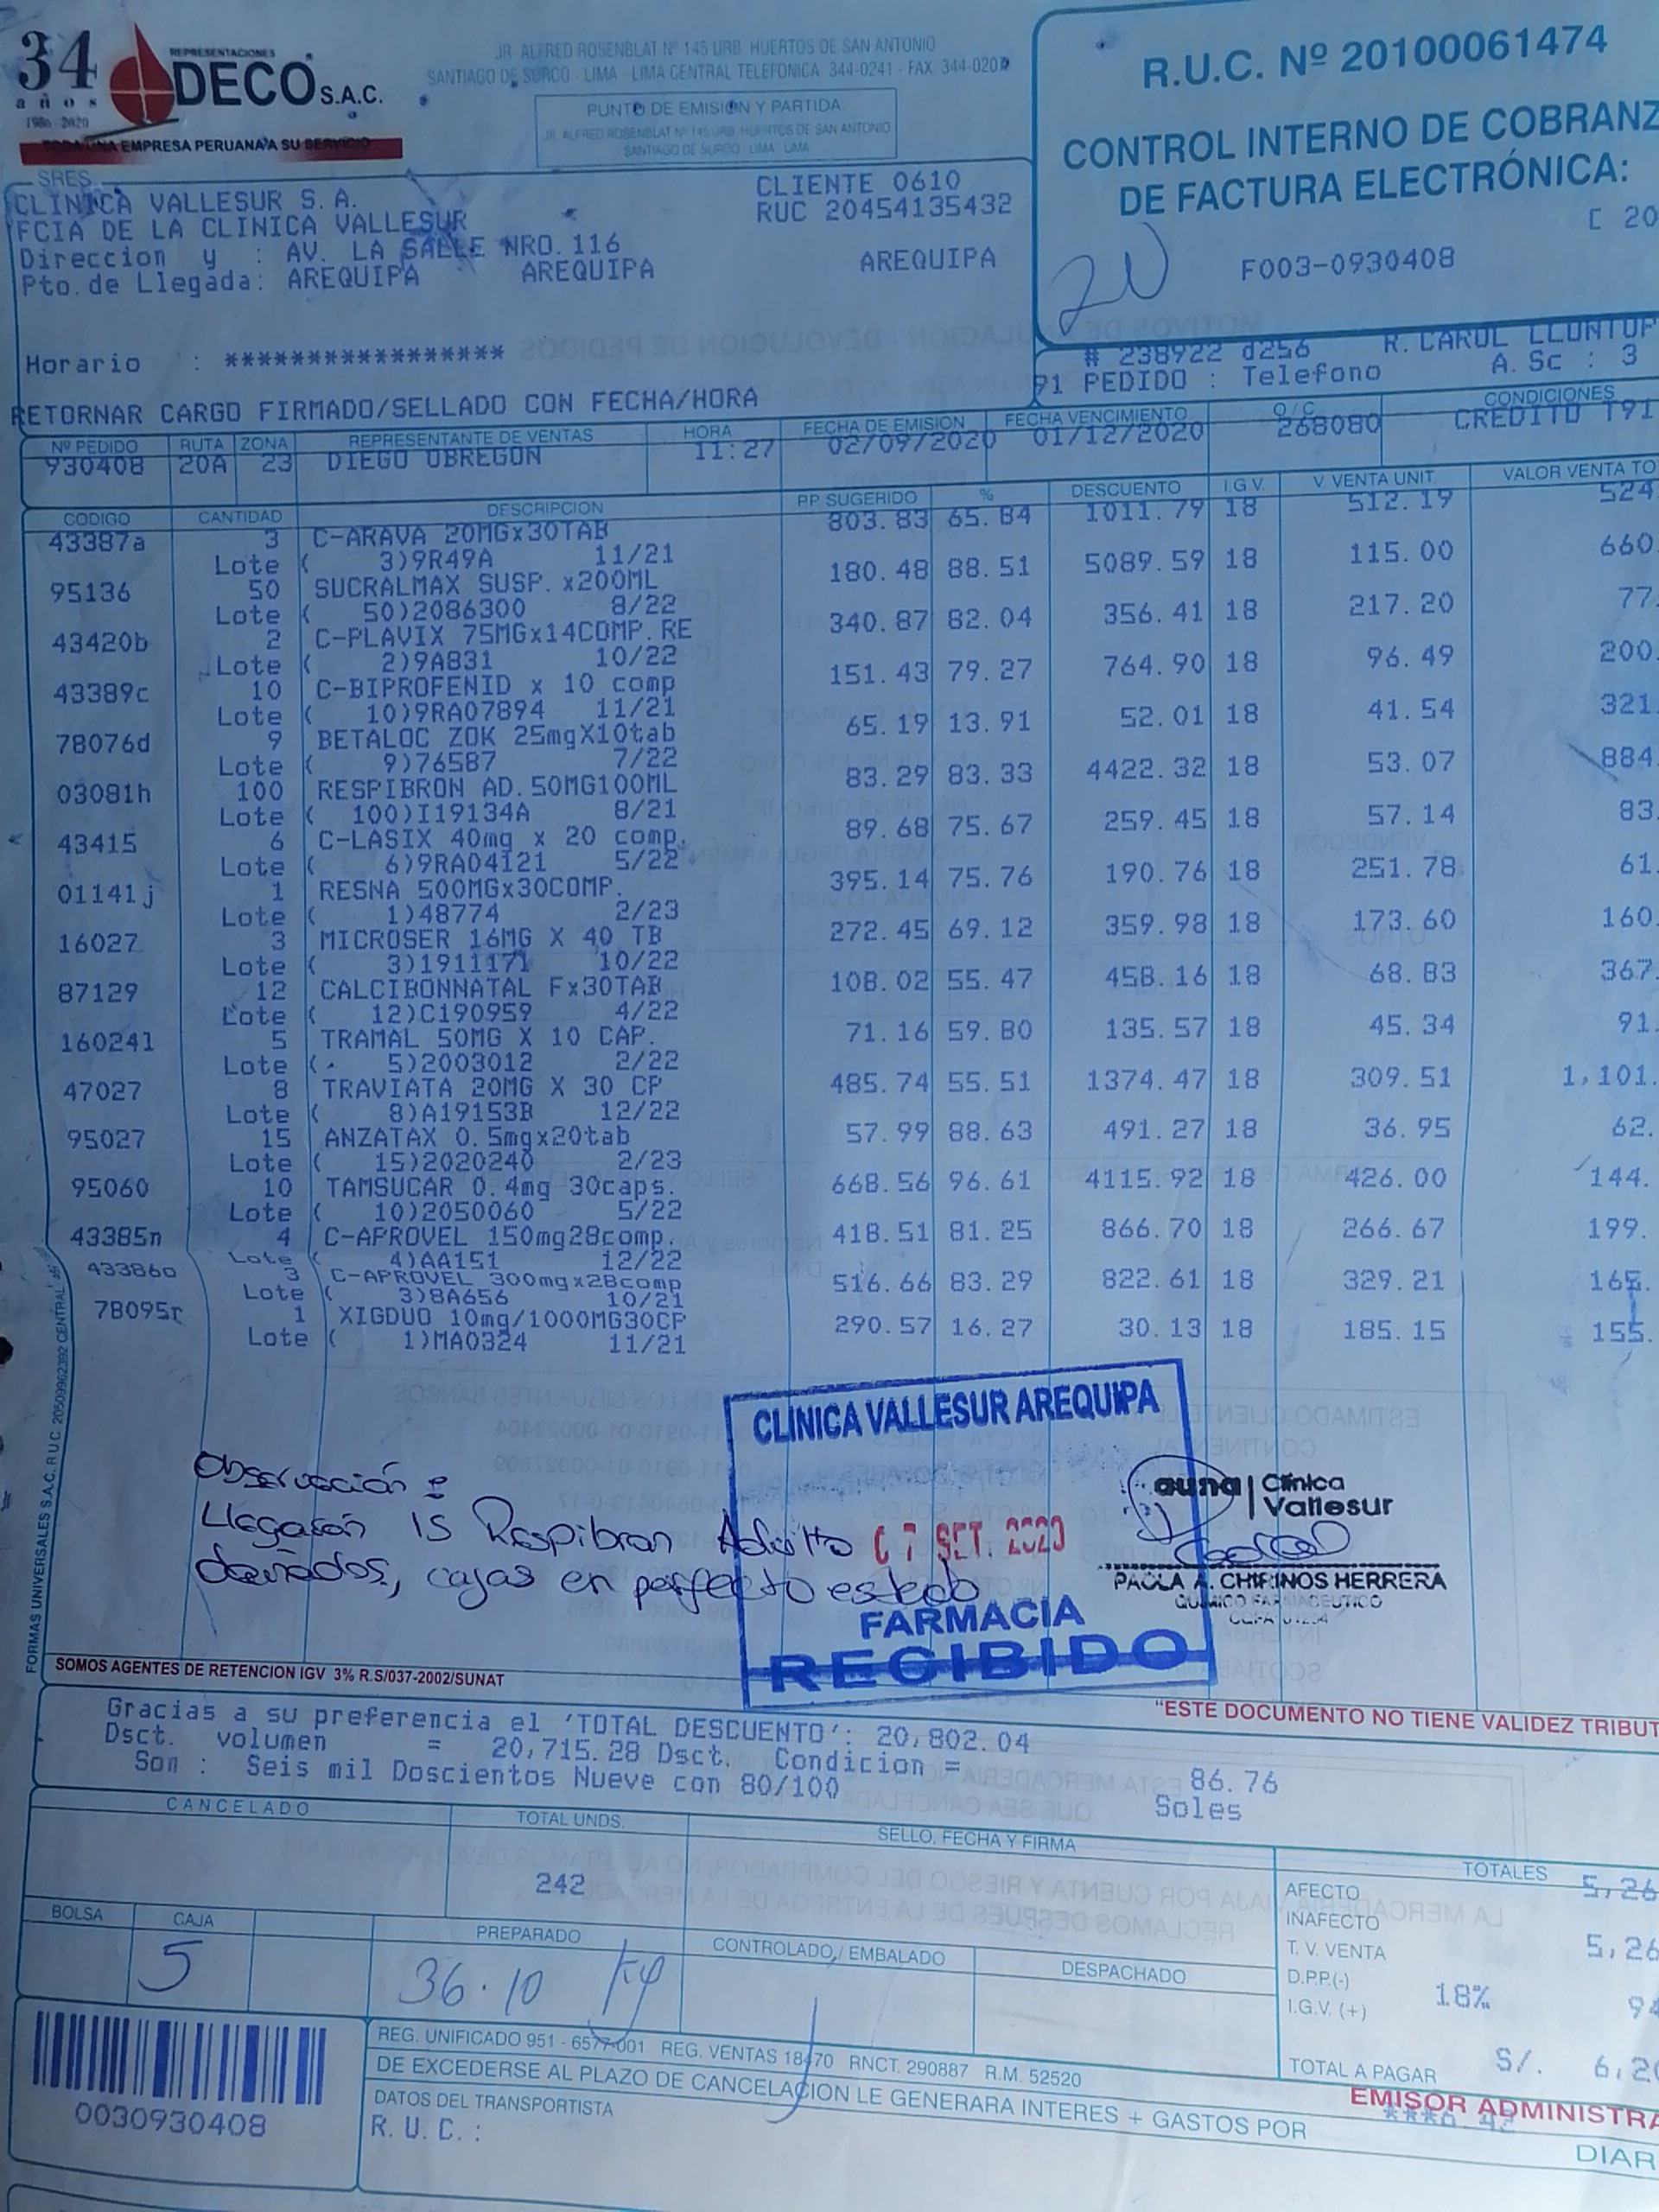 34 años 1986-2020
REPRESENTACIONES
DECO S.A.C.
TODA UNA EMPRESA PERUANA A SU SERVICIO
JR. ALFRED ROSENBLAT Nº 145 URB. HUERTOS DE SAN ANTONIO
SANTIAGO DE SURCO - LIMA - LIMA CENTRAL TELEFONICA 344-0241 - FAX 344-020
PUNTO DE EMISIÓN Y PARTIDA
JR. ALFRED ROSENBLAT Nº 145 URB. HUERTOS DE SAN ANTONIO
SANTIAGO DE SURCO - LIMA - LIMA
R.U.C. Nº 20100061474
CONTROL INTERNO DE COBRANZ
DE FACTURA ELECTRÓNICA:
C 20
F003-0930408
SRES.
CLINICA VALLESUR S.A.
FCIA DE LA CLINICA VALLESUR
CLIENTE 0610
RUC 20454135432
Direccion y : AV. LA SALLE NRO.116
Pto.de Llegada: AREQUIPA AREQUIPA AREQUIPA
Horario : *****************
# 238922 d256 R.CAROL LLONTOP
91 PEDIDO : Telefono A.Sc : 3
RETORNAR CARGO FIRMADO/SELLADO CON FECHA/HORA
Nº PEDIDO RUTA ZONA REPRESENTANTE DE VENTAS HORA FECHA DE EMISION FECHA VENCIMIENTO O/C CONDICIONES
930408 20A 23 DIEGO OBREGON 11:27 02/09/2020 01/12/2020 268080 CREDITO T91
CODIGO CANTIDAD DESCRIPCION P.P. SUGERIDO % DESCUENTO I.G.V. V. VENTA UNIT. VALOR VENTA TO
43387a 3 C-ARAVA 20MGx30TAB 803.83 65.84 1011.79 18 512.19 524
Lote ( 3)9R49A 11/21
95136 50 SUCRALMAX SUSP.x200ML 180.48 88.51 5089.59 18 115.00 660.
Lote ( 50)2086300 8/22
43420b 2 C-PLAVIX 75MGx14COMP.RE 340.87 82.04 356.41 18 217.20 77.
Lote ( 2)9A831 10/22
43389c 10 C-BIPROFENID x 10 comp 151.43 79.27 764.90 18 96.49 200.
Lote ( 10)9RA07894 11/21
78076d 9 BETALOC ZOK 25mgX10tab 65.19 13.91 52.01 18 41.54 321.
Lote ( 9)76587 7/22
03081h 100 RESPIBRON AD.50MG100ML 83.29 83.33 4422.32 18 53.07 884.
Lote ( 100)I19134A 8/21
43415 6 C-LASIX 40mg x 20 comp. 89.68 75.67 259.45 18 57.14 83.
Lote ( 6)9RA04121 5/22
01141j 1 RESNA 500MGx30COMP. 395.14 75.76 190.76 18 251.78 61.
Lote ( 1)48774 2/23
16027 3 MICROSER 16MG X 40 TB 272.45 69.12 359.98 18 173.60 160.
Lote ( 3)1911171 10/22
87129 12 CALCIBONNATAL Fx30TAB 108.02 55.47 458.16 18 68.83 367.
Lote ( 12)C190959 4/22
16024l 5 TRAMAL 50MG X 10 CAP. 71.16 59.80 135.57 18 45.34 91.
Lote ( 5)2003012 2/22
47027 8 TRAVIATA 20MG X 30 CP 485.74 55.51 1374.47 18 309.51 1,101.
Lote ( 8)A19153B 12/22
95027 15 ANZATAX 0.5mgx20tab 57.99 88.63 491.27 18 36.95 62.
Lote ( 15)2020240 2/23
95060 10 TAMSUCAR 0.4mg 30caps. 668.56 96.61 4115.92 18 426.00 144.
Lote ( 10)2050060 5/22
43385n 4 C-APROVEL 150mg28comp. 418.51 81.25 866.70 18 266.67 199.
Lote ( 4)AA151 12/22
43386o 3 C-APROVEL 300mgx28comp 516.66 83.29 822.61 18 329.21 165.
Lote ( 3)8A656 10/21
78095r 1 XIGDUO 10mg/1000MG30CP 290.57 16.27 30.13 18 185.15 155.
Lote ( 1)MA0324 11/21
FORMAS UNIVERSALES S.A.C. R.U.C. 20509962392 CENTRAL
CLINICA VALLESUR AREQUIPA
07 SET. 2020
FARMACIA
RECIBIDO
Observación :
Llegarón 15 Respibran Adulto
dañados, cajas en perfecto estado
auna | Clínica Vallesur
PAOLA A. CHIRINOS HERRERA
QUIMICO FARMACEUTICO
SOMOS AGENTES DE RETENCION IGV 3% R.S/037-2002/SUNAT
"ESTE DOCUMENTO NO TIENE VALIDEZ TRIBUT
Gracias a su preferencia el 'TOTAL DESCUENTO': 20,802.04
Dsct. volumen = 20,715.28 Dsct. Condicion = 86.76
Son : Seis mil Doscientos Nueve con 80/100 Soles
CANCELADO TOTAL UNDS. SELLO, FECHA Y FIRMA TOTALES
242
AFECTO 5,26
INAFECTO
T. V. VENTA 5,26
D.P.P.(-)
I.G.V. (+) 18% 94
TOTAL A PAGAR S/. 6,20
BOLSA CAJA PREPARADO CONTROLADO / EMBALADO DESPACHADO
5 36.10 kg
0030930408
REG. UNIFICADO 951 - 6577-001 REG. VENTAS 18470 RNCT. 290887 R.M. 52520
DE EXCEDERSE AL PLAZO DE CANCELACION LE GENERARA INTERES + GASTOS POR
DATOS DEL TRANSPORTISTA
R.U.C.:
EMISOR ADMINISTRA
DIAR